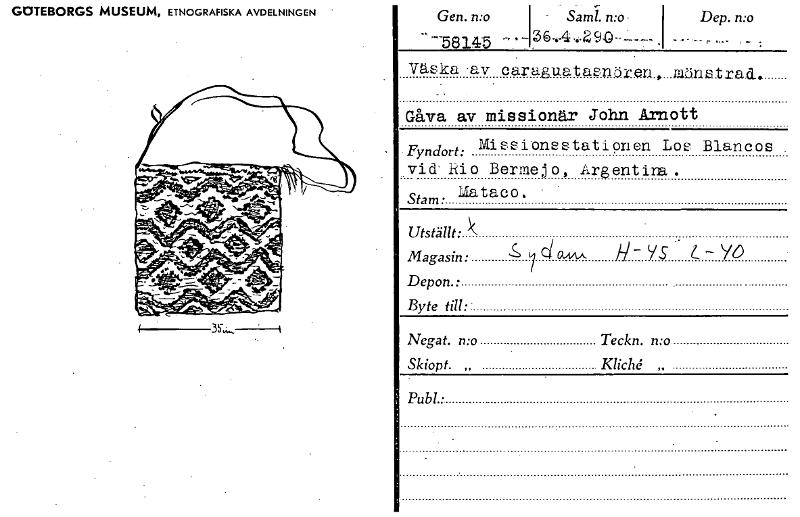 GÖTEBORGS MUSEUM, ETNOGRAFISKA AVDELNINGEN
35 cm
Gen. n:o Saml. n:o Dep. n:o
58145 36.4.290
Väska av caraguatasnören, mönstrad.
Gåva av missionär John Arnott
Fyndort: Missionsstationen Los Blancos
vid Rio Bermejo, Argentina.
Stam: Mataco.
Utställt: x
Magasin: Sydam H-45 L-40
Depon.:
Byte till:
Negat. n:o Teckn. n:o
Skiopt. „ Kliché „
Publ.: